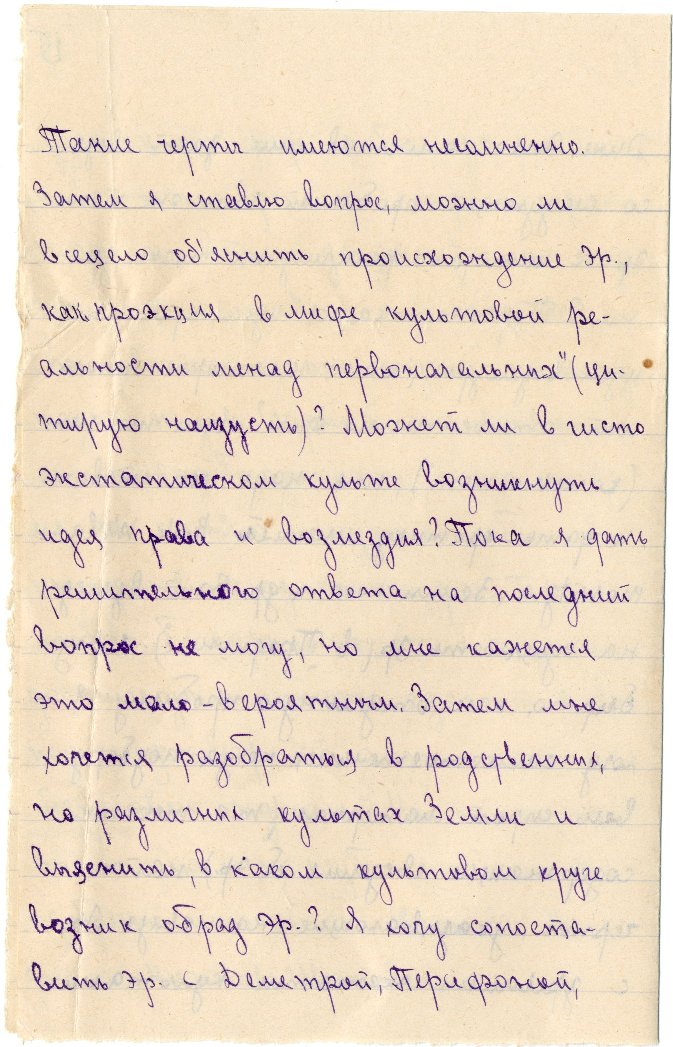 Такие черты имеются несомненно.
Затем я ставлю вопрос, можно ли
всецело об'яснить происхождение Эр.,
как проэкция в мифе культовой ре-
альности менад первоначальных" (ци-
тирую наизусть)? Может ли в чисто
экстатическом культе возникнуть
идея права и возмездия? Пока я дать
решительного ответа на последний
вопрос не могу, но мне кажется
это мало-вероятным. Затем мне
хочется разобраться в родственных,
но различных культах Земли и
выяснить, в каком культовом круге
возник образ Эр.? Я хочу сопоста-
вить Эр. с Деметрой, Персефоной,